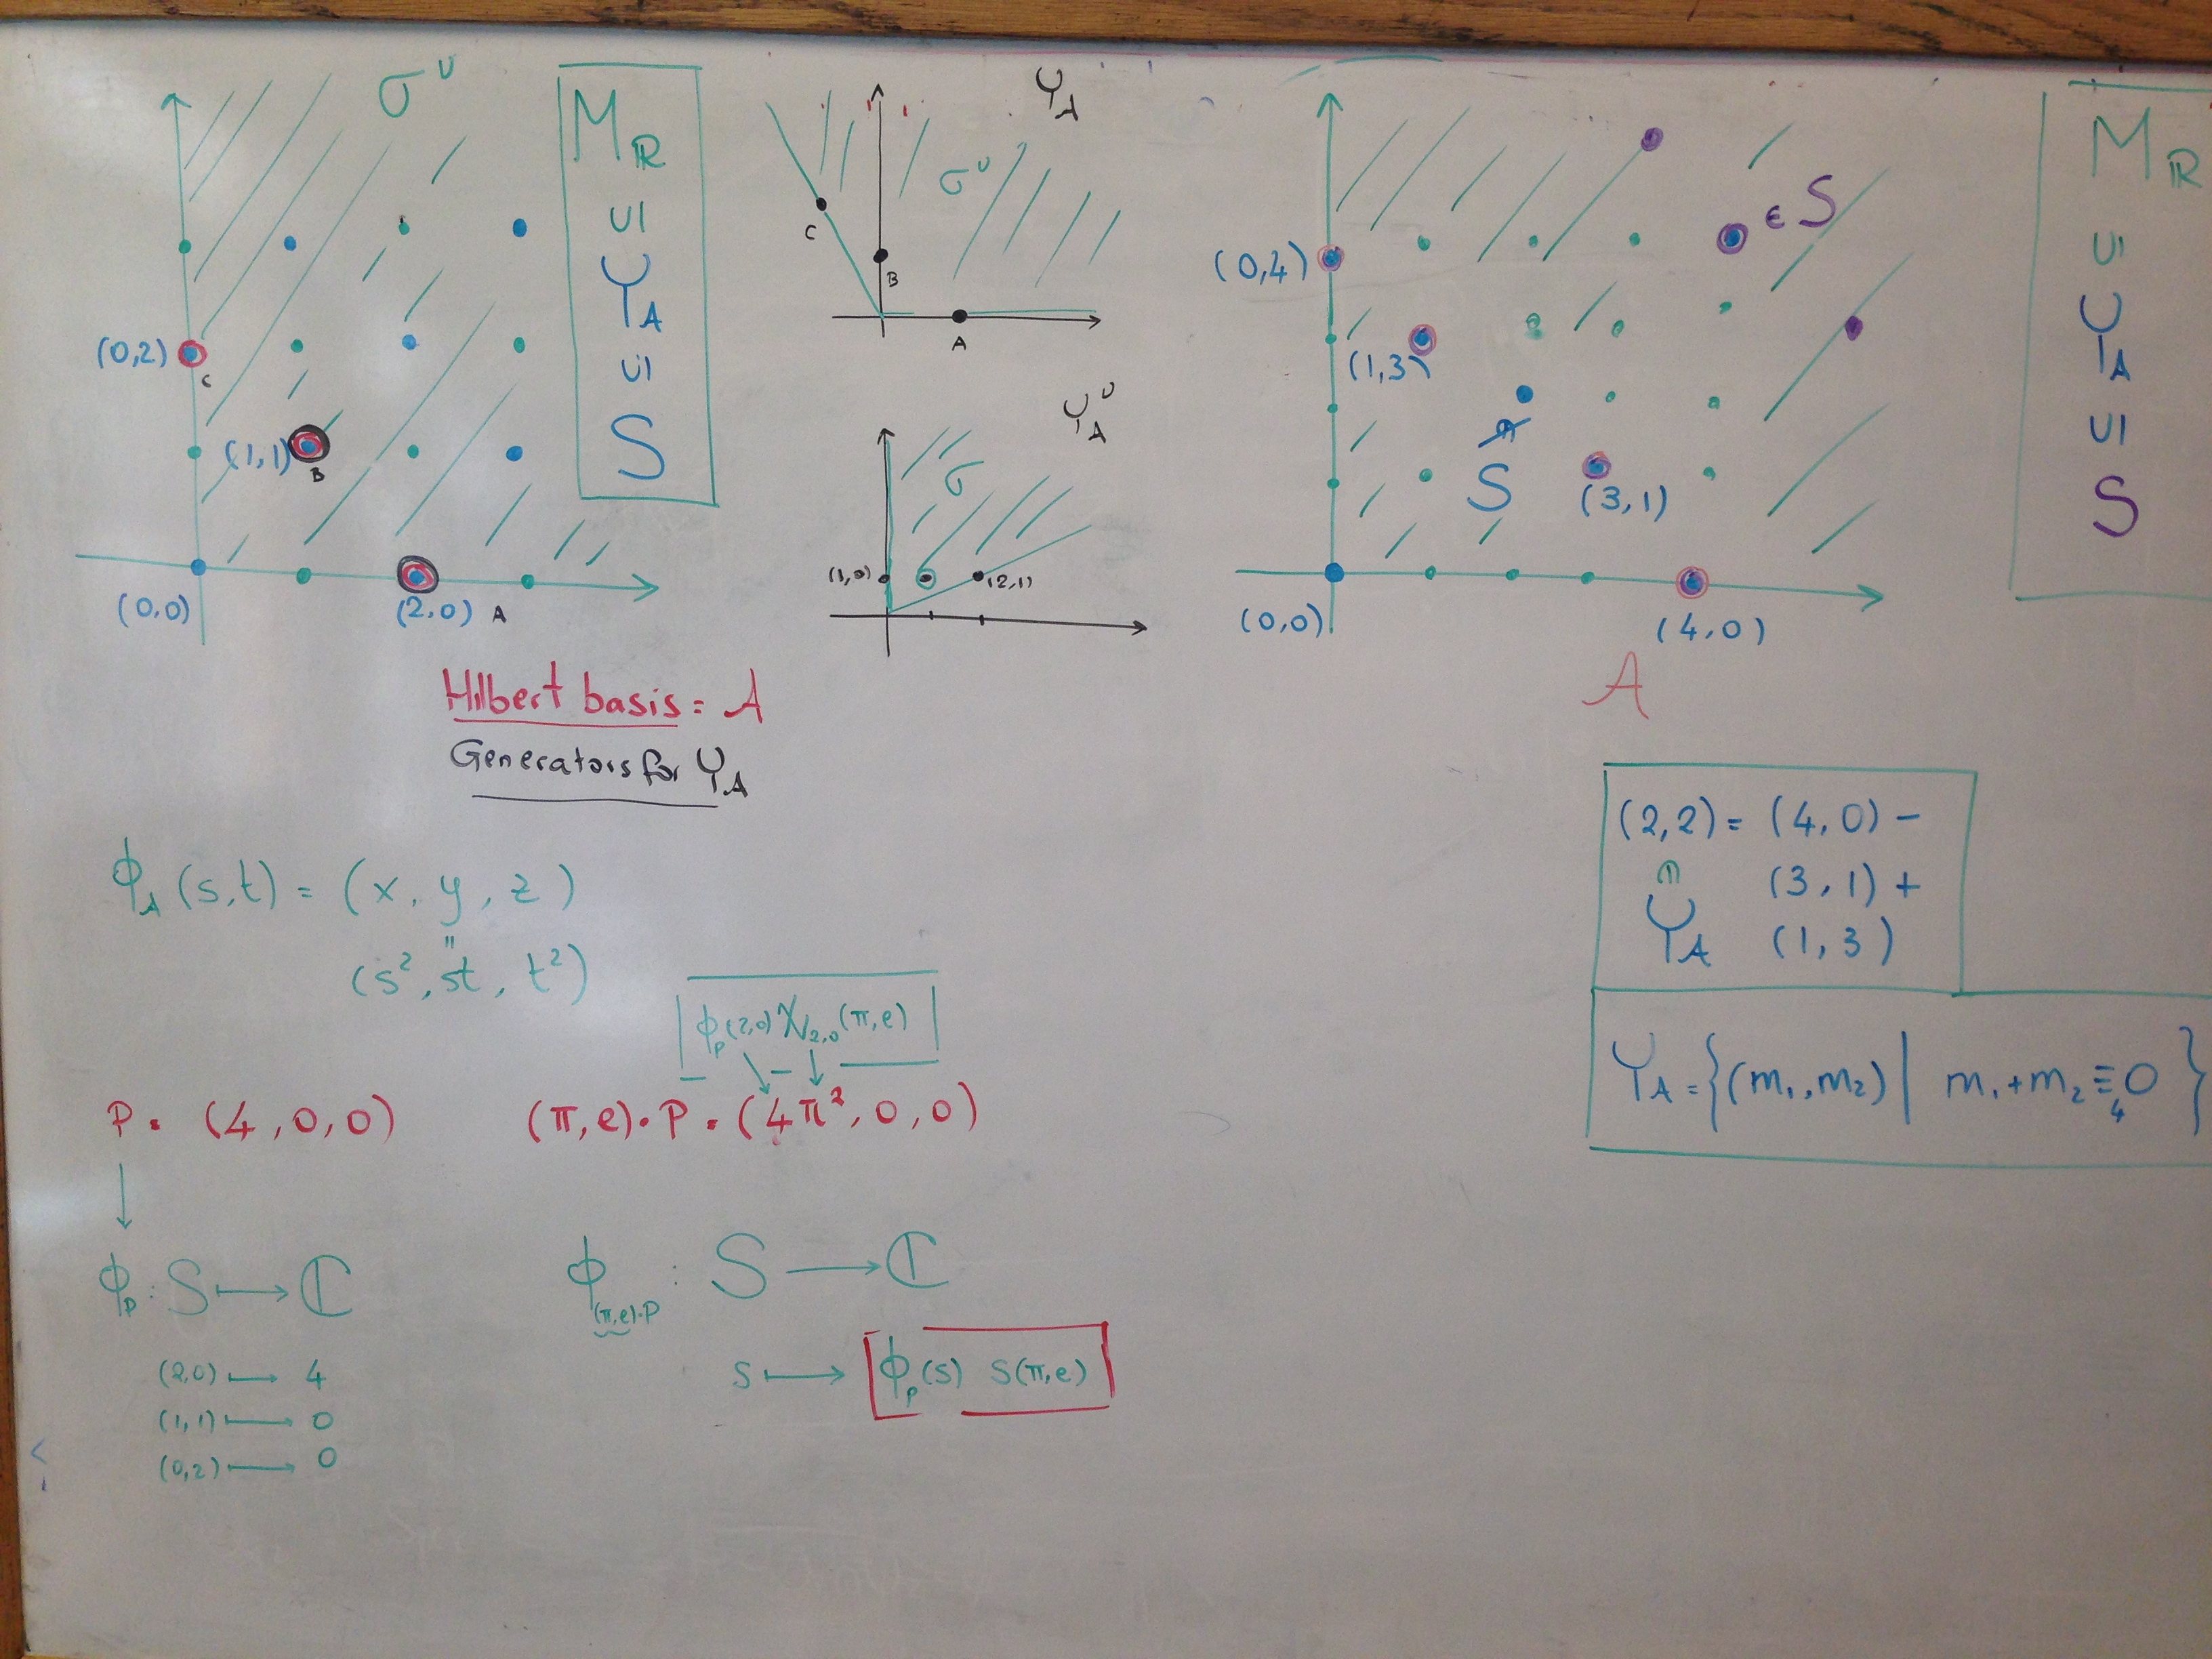 σ^∪
M_ℝ
∪I
Y_A
∪I
S
(0,2)
C
(1,1)
B
(0,0)
(2,0) A
Y_A
σ^∪
C
B
A
Y_A^∪
σ
(1,0)
(2,1)
(0,4)
∈ S
(1,3)
S
(3,1)
(0,0)
(4,0)
A
M_ℝ
∪I
Y_A
∪I
S
Hilbert basis = A
Generators for Y_A
ϕ_A (s,t) = (x, y, z)
"
(s², st, t²)
ϕ_P(2,0) χ_{2,0}(π,e)
P = (4,0,0)
(π,e)·P = (4π², 0, 0)
ϕ_P : S ⟼ ℂ
(2,0) ⟼ 4
(1,1) ⟼ 0
(0,2) ⟼ 0
ϕ_{(π,e)·P} : S ⟶ ℂ
s ⟼ ϕ_P(s) s(π,e)
(2,2) = (4,0) −
∩ (3,1) +
Y_A (1,3)
Y_A = {(m₁,m₂) | m₁+m₂ ≡₄ 0}